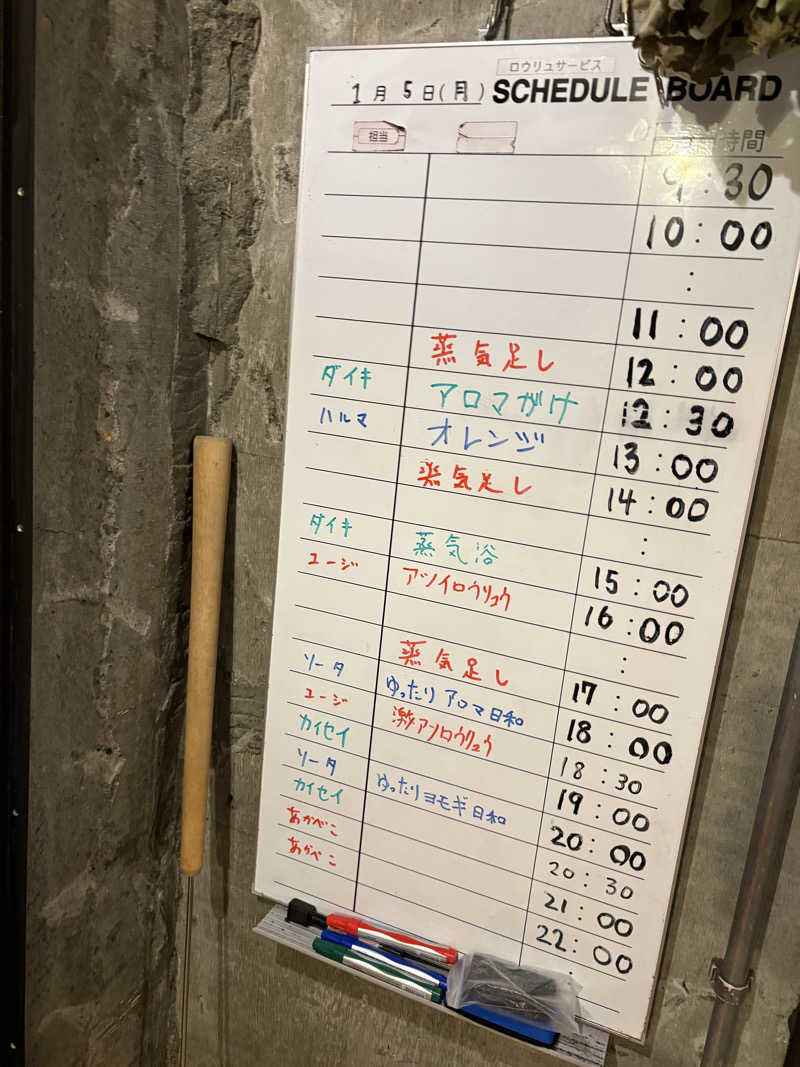 ロウリュサービス
1月 5日(月) SCHEDULE BOARD
担当 時間
9:30
10:00
:
11:00
蒸気足し 12:00
ダイキ アロマがけ 12:30
ハルマ オレンジ 13:00
蒸気足し 14:00
:
ダイキ 蒸気浴 15:00
ユージ アツイロウリュウ 16:00
:
蒸気足し 17:00
ソータ ゆったりアロマ日和 18:00
ユージ 激アツロウリュウ 18:30
カイセイ 19:00
ソータ ゆったりヨモギ日和 20:00
カイセイ 20:30
あかべこ 21:00
あかべこ 22:00
: